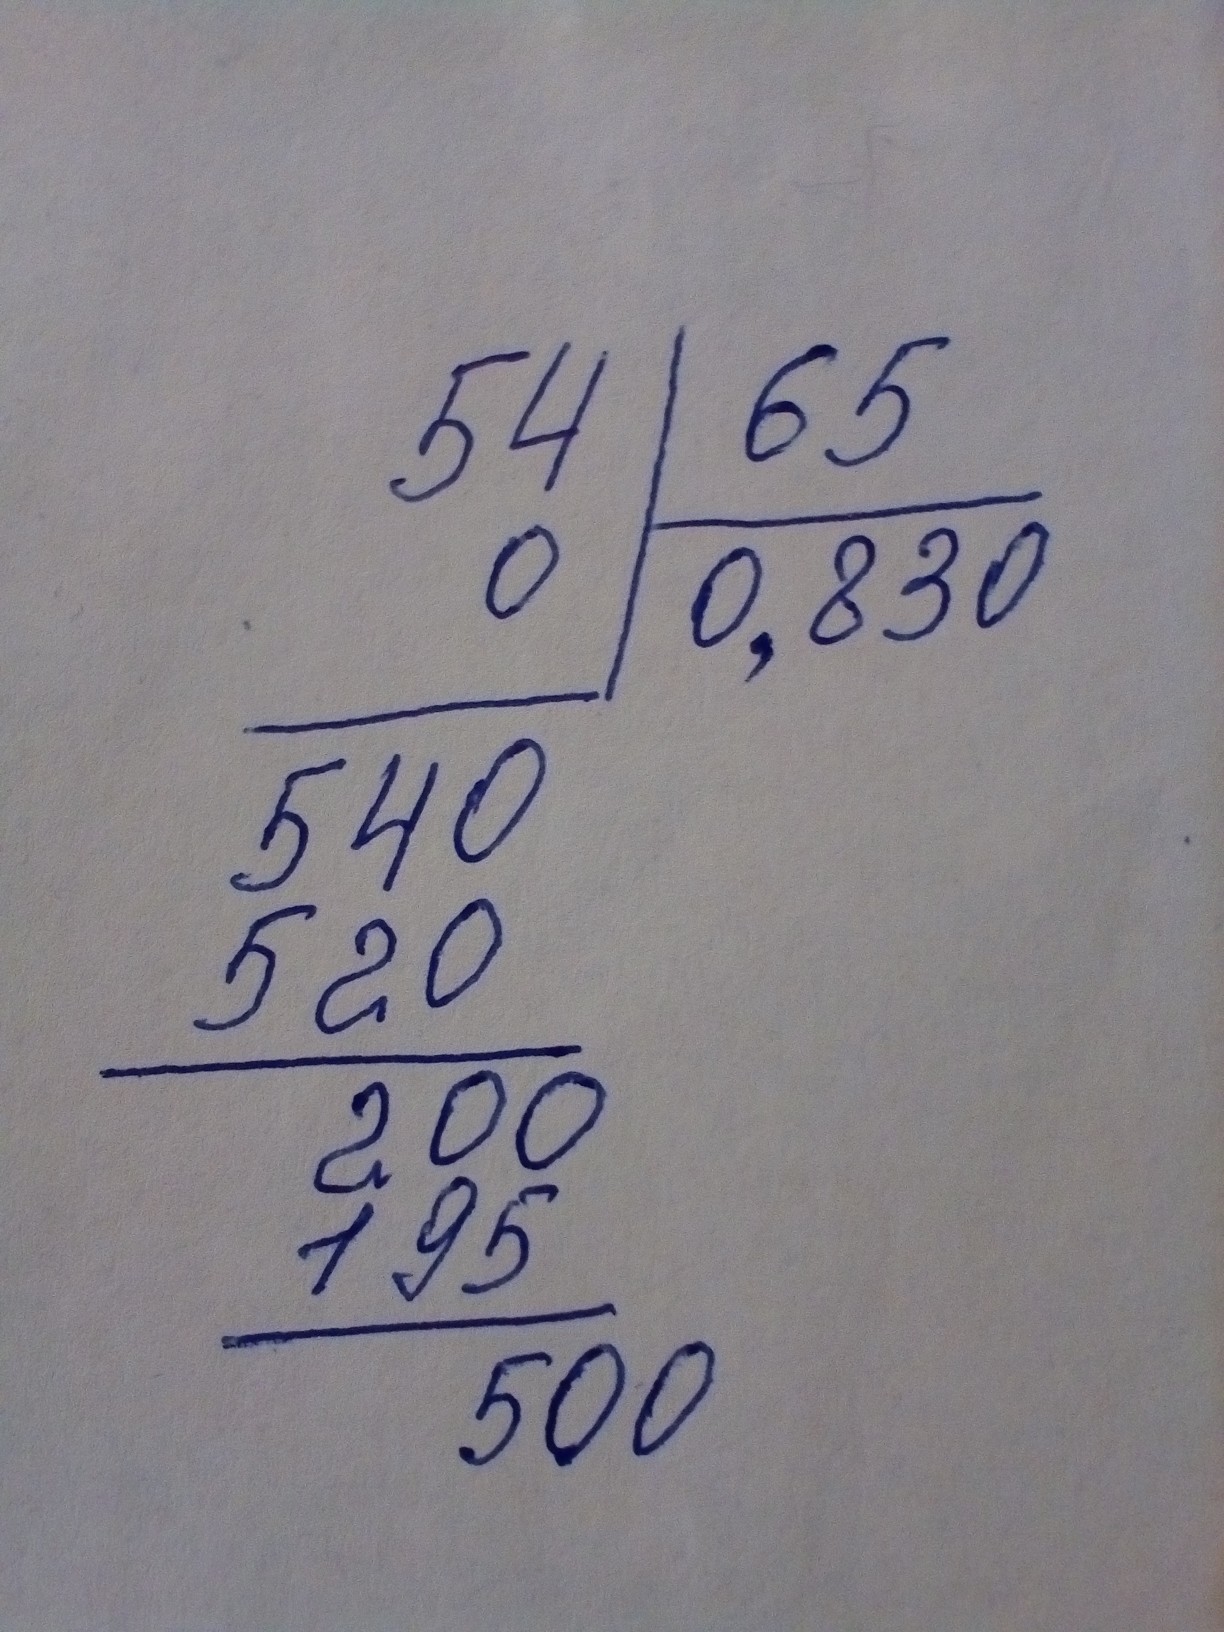 54 65
0 0,830
540
520
200
195
500